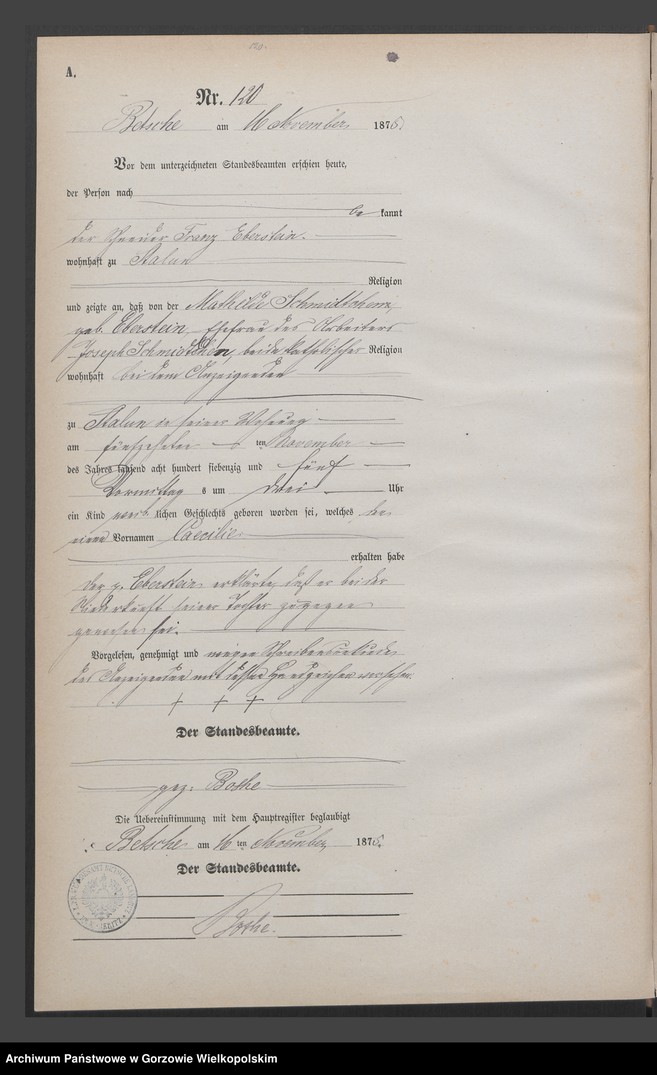 120.
A.
Nr. 120
Betsche am 16 November 1875.
Vor dem unterzeichneten Standesbeamten erschien heute,
der Person nach
be kannt
der Franz Eberstein.
wohnhaft zu Stalun
Religion
und zeigte an, daß von der Mathilde Schmidtchen,
geb. Eberstein, Ehefrau des Arbeiters
Joseph Schmidtchen, beide katholischer Religion
wohnhaft bei dem Anzeigenden
zu Stalun in seiner Wohnung
am fünfzehnten ten November
des Jahres tausend acht hundert siebenzig und fünf
Vormittag s um drei Uhr
ein Kind weib lichen Geschlechts geboren worden sei, welches den
einen Vornamen Caecilie
erhalten habe
Der p. Eberstein erklärte, daß er bei der
Niederkunft seiner Tochter zugegen
gewesen sei.
Vorgelesen, genehmigt und wegen Schreibensunkunde
des Anzeigenden mit dessen Handzeichen versehen.
+ + +
Der Standesbeamte.
gez. Bothe
Die Uebereinstimmung mit dem Hauptregister beglaubigt
Betsche am 16 ten November 1875.
Der Standesbeamte.
Bothe.
Archiwum Państwowe w Gorzowie Wielkopolskim